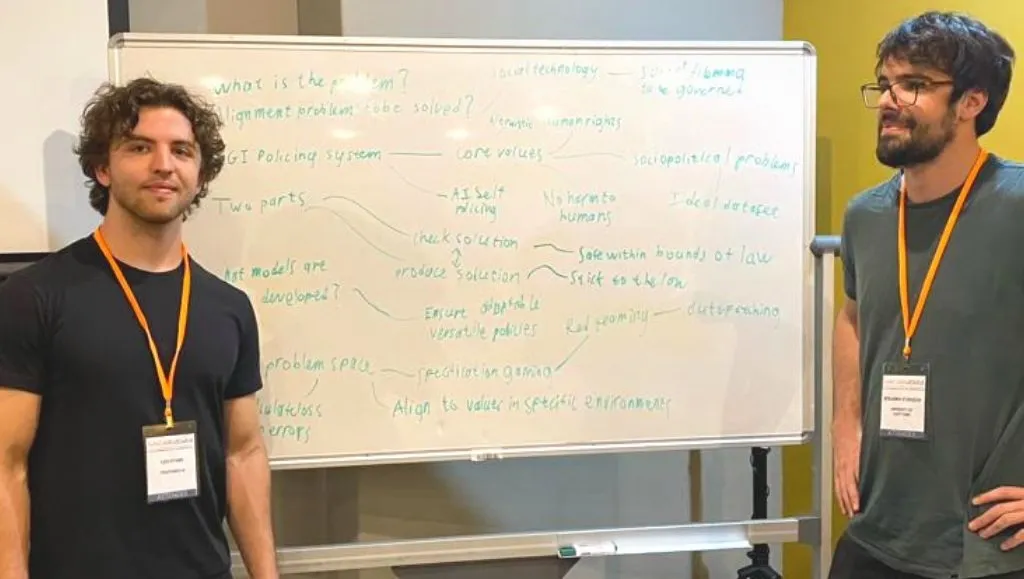 what is the problem?
alignment problem to be solved?
social technology
to be governed
human rights
AGI Policing system
core values
sociopolitical problems
Two parts
AI Self
policing
No harm to
humans
Ideal dataset
check solution
Safe within bounds of law
produce solution
Stick to the law
models are
developed?
Ensure adaptable
versatile policies
Red teaming
autopatching
problem space
specification gaming
Align to values in specific environments
errors